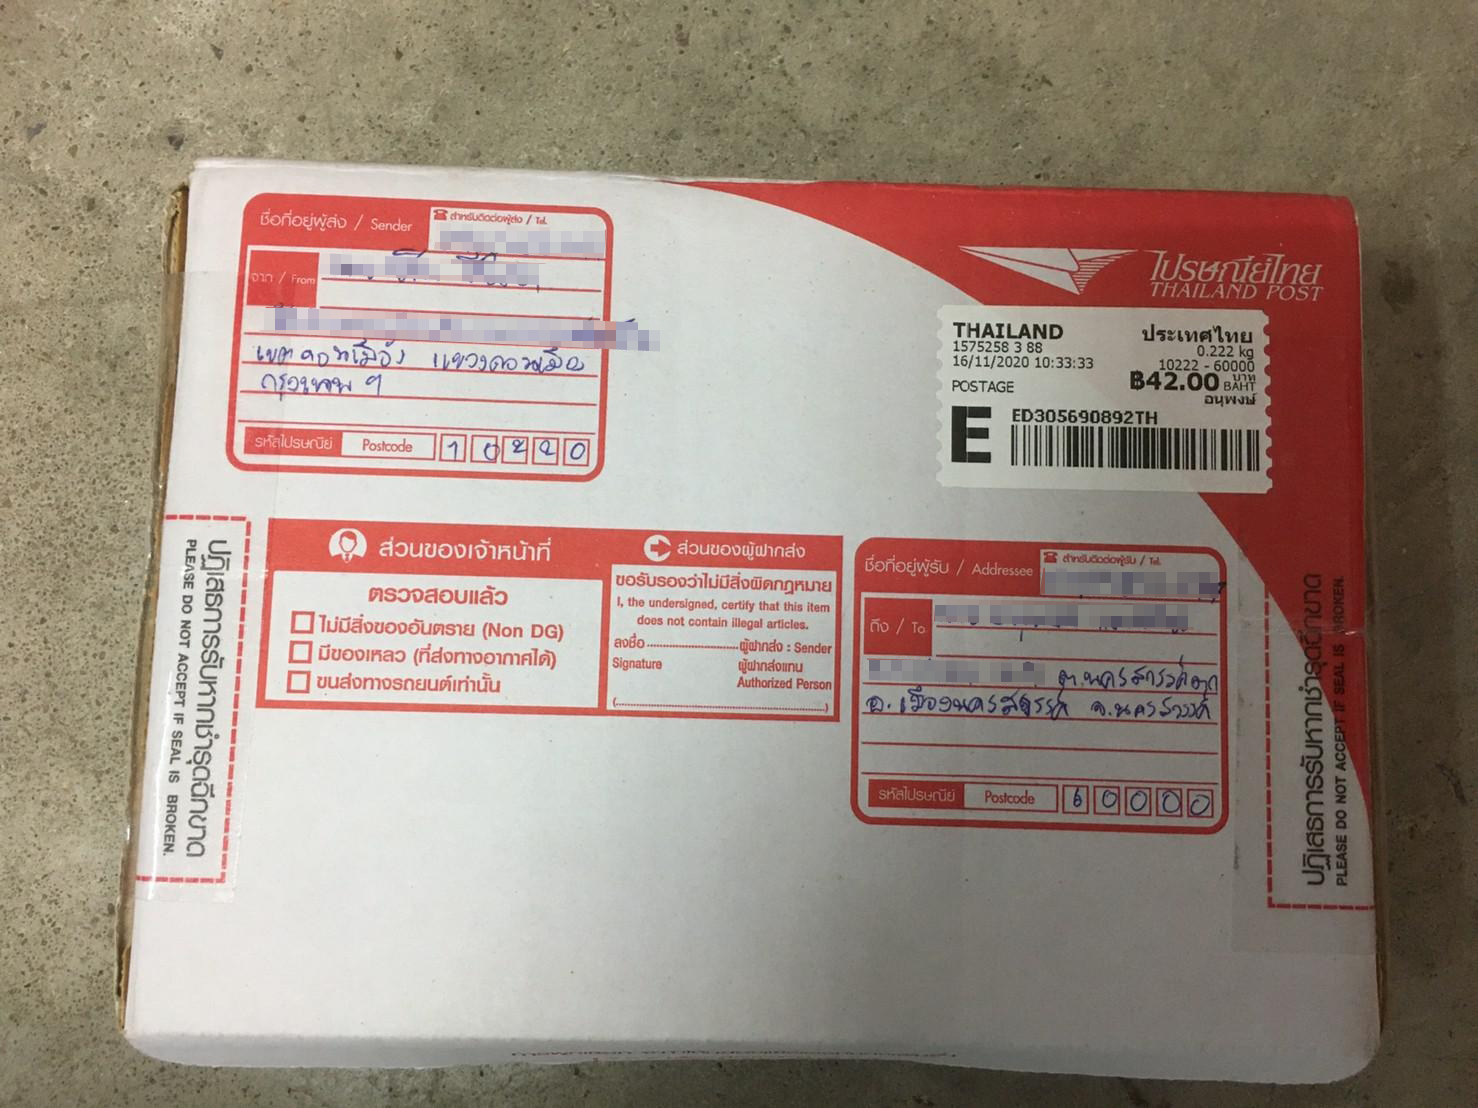 ชื่อที่อยู่ผู้ส่ง / Sender
สำหรับติดต่อผู้ส่ง / Tel.
จาก / From
เขตดอนเมือง แขวงดอนเมือง
กรุงเทพ ฯ
รหัสไปรษณีย์ Postcode 10220
ไปรษณีย์ไทย
THAILAND POST
THAILAND ประเทศไทย
1575258 3 88 0.222 kg
16/11/2020 10:33:33 10222 - 60000
POSTAGE ฿42.00 บาท BAHT
อนุพงษ์
E ED305690892TH
ปฏิเสธการรับหากชำรุดฉีกขาด
PLEASE DO NOT ACCEPT IF SEAL IS BROKEN.
ส่วนของเจ้าหน้าที่
ตรวจสอบแล้ว
ไม่มีสิ่งของอันตราย (Non DG)
มีของเหลว (ที่ส่งทางอากาศได้)
ขนส่งทางรถยนต์เท่านั้น
ส่วนของผู้ฝากส่ง
ขอรับรองว่าไม่มีสิ่งผิดกฎหมาย
I, the undersigned, certify that this item
does not contain illegal articles.
ลงชื่อ ........................ ผู้ฝากส่ง : Sender
Signature ผู้ฝากส่งแทน
Authorized Person
(......................................................)
ชื่อที่อยู่ผู้รับ / Addressee
สำหรับติดต่อผู้รับ / Tel.
ถึง / To
ต.นครสวรรค์ตก
อ.เมืองนครสวรรค์ จ.นครสวรรค์
รหัสไปรษณีย์ Postcode 60000
ปฏิเสธการรับหากชำรุดฉีกขาด
PLEASE DO NOT ACCEPT IF SEAL IS BROKEN.